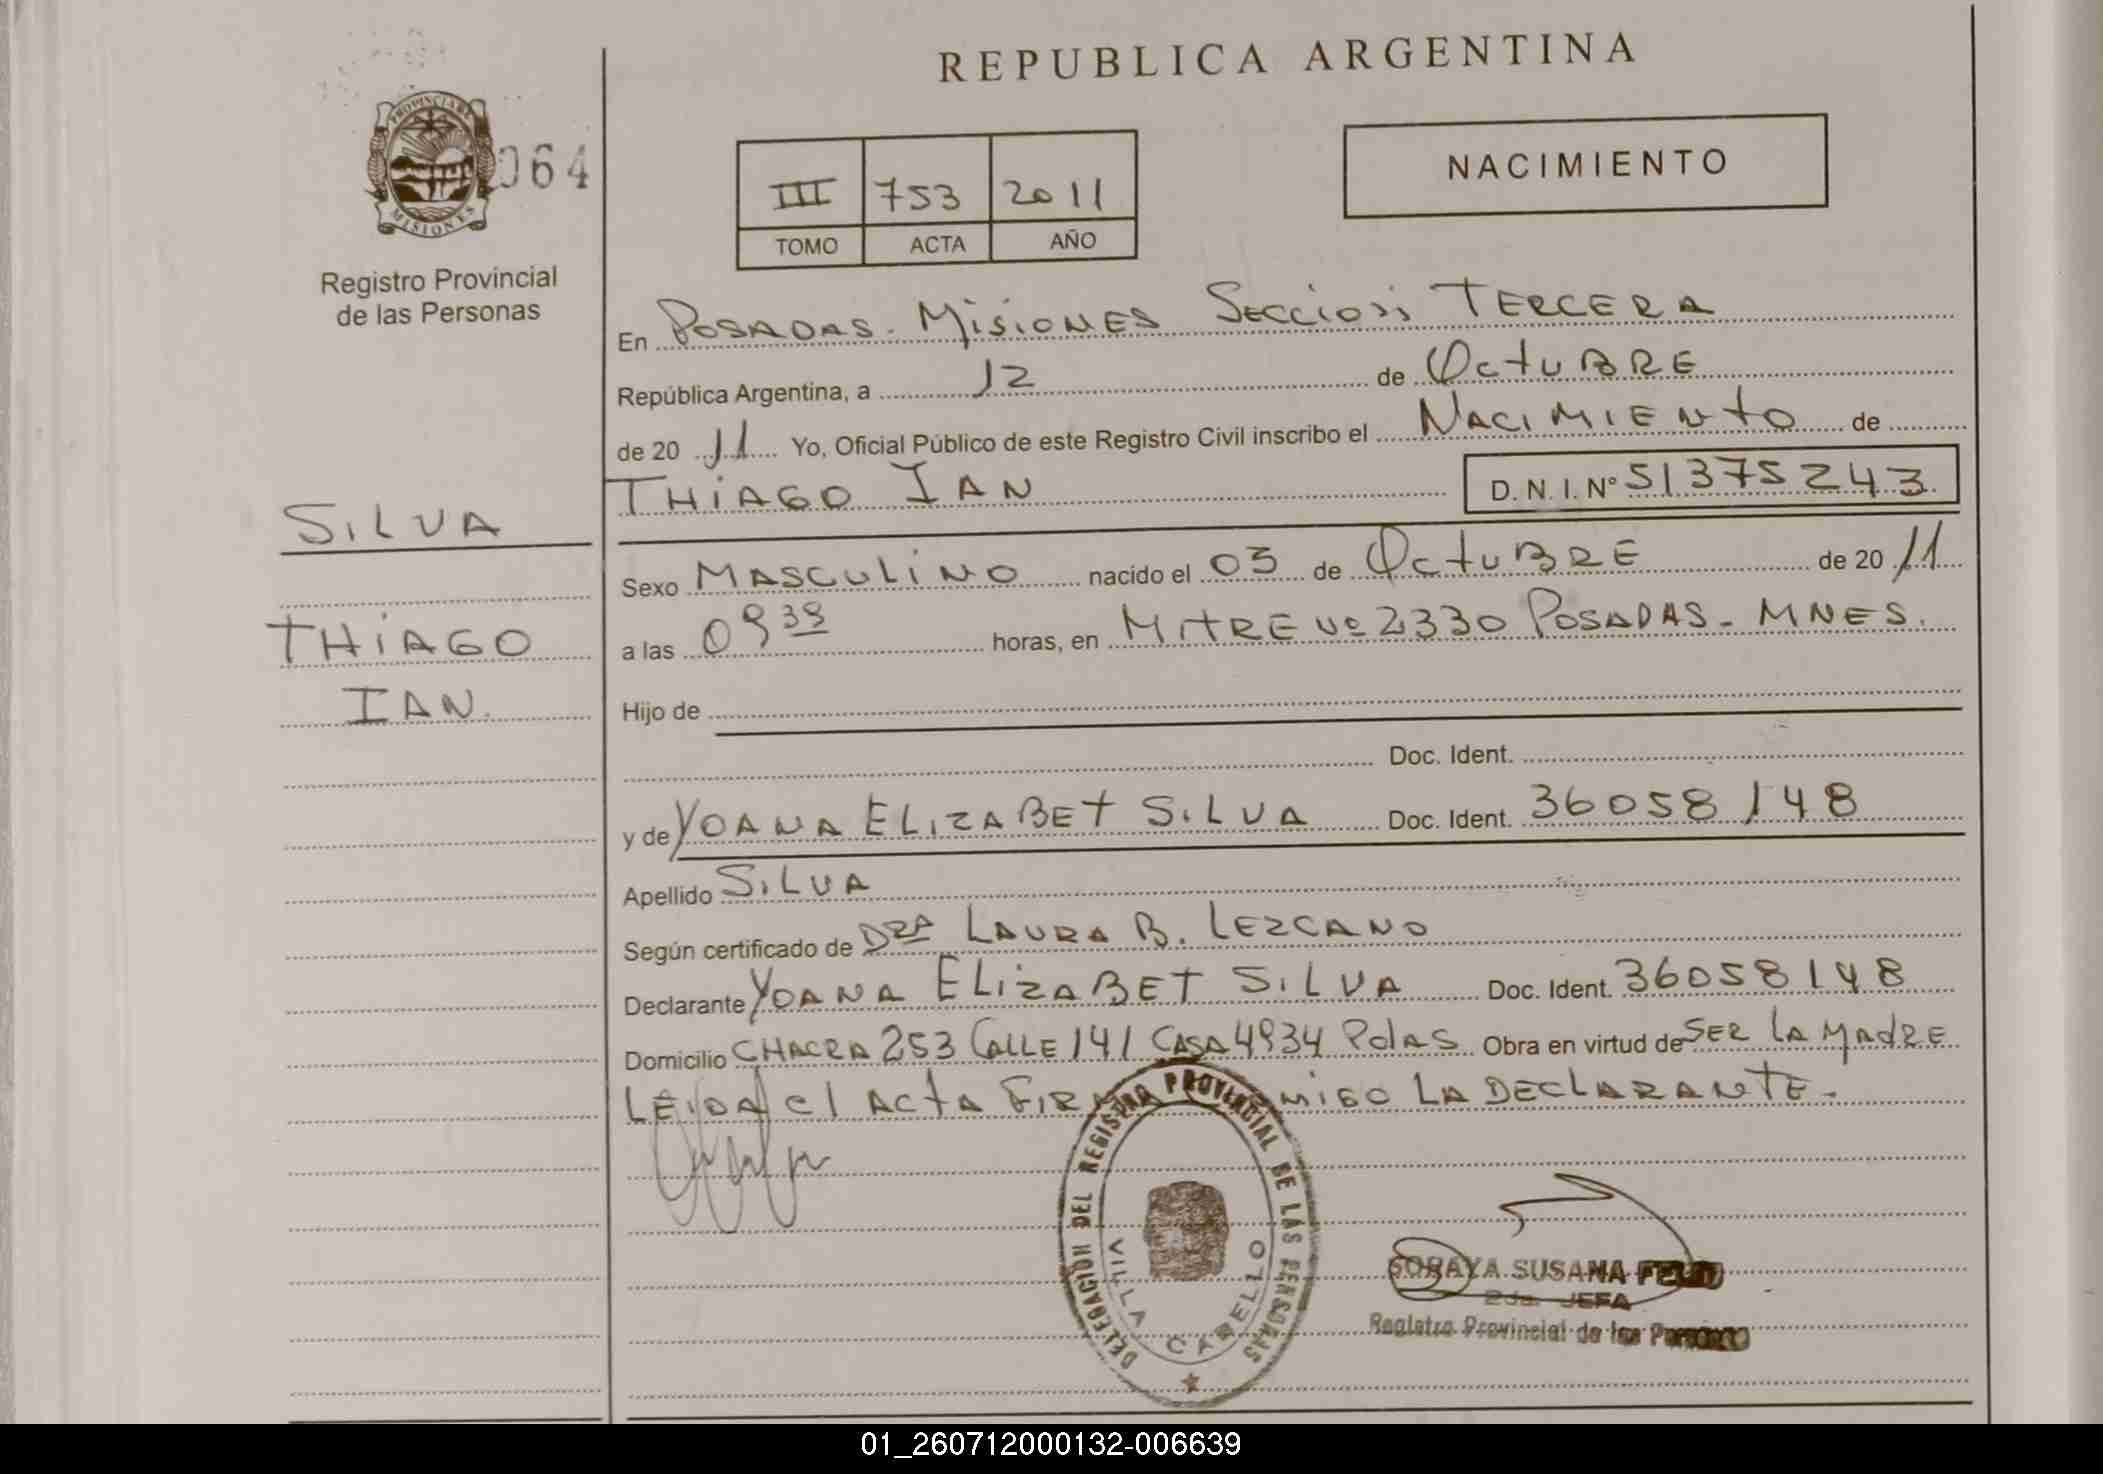 REPUBLICA ARGENTINA
PROVINCIA DE MISIONES
064
Registro Provincial
de las Personas
III 753 2011
TOMO ACTA AÑO
NACIMIENTO
En POSADAS - MISIONES SECCION TERCERA
República Argentina, a 12 de OCTUBRE
de 20 11 Yo, Oficial Público de este Registro Civil inscribo el NACIMIENTO de
THIAGO IAN D. N. I. Nº 51375243
SILVA
THIAGO
IAN.
Sexo MASCULINO nacido el 03 de OCTUBRE de 20 11
a las 09 39 horas, en MITRE Nº 2330 POSADAS - MNES.
Hijo de
Doc. Ident.
y de YOANA ELIZABET SILVA Doc. Ident. 36058148
Apellido SILVA
Según certificado de DRA LAURA B. LEZCANO
Declarante YOANA ELIZABET SILVA Doc. Ident. 36058148
Domicilio CHACRA 253 CALLE 141 CASA 4934 PdAS Obra en virtud de SER LA MADRE
LEIDA el ACTA FIRMA MIGO LA DECLARANTE.-
DELEGACION DEL REGISTRO PROVINCIAL DE LAS PERSONAS
VILLA CABELLO
SORAYA SUSANA
2da. JEFA
Registro Provincial de las Personas
01_260712000132-006639